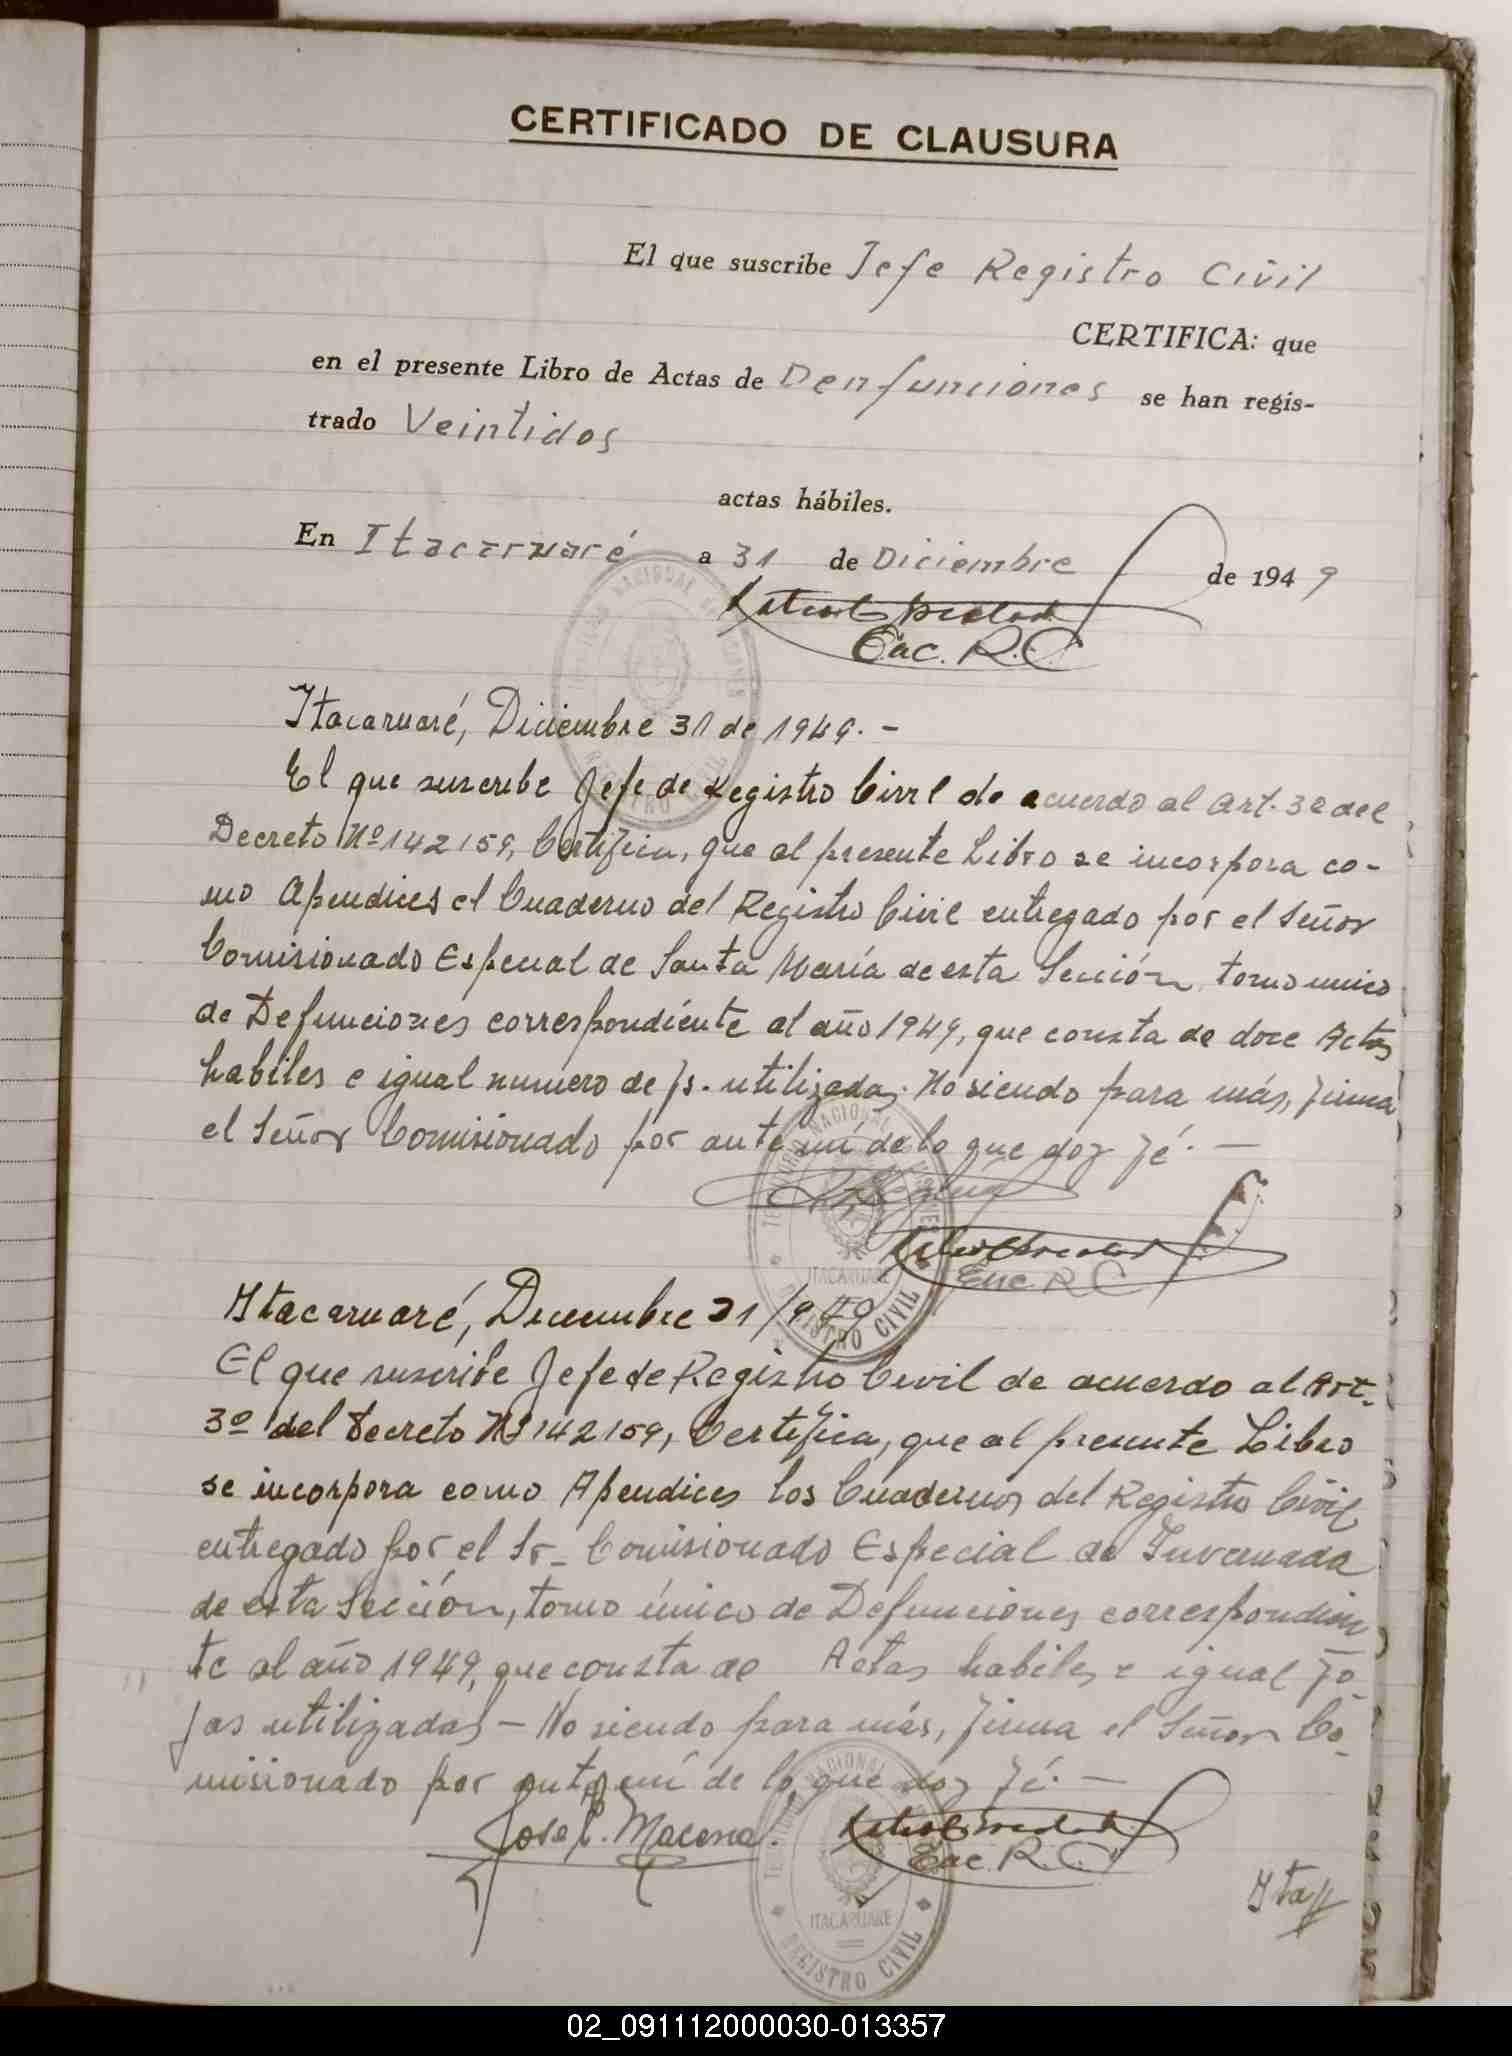 CERTIFICADO DE CLAUSURA
El que suscribe Jefe Registro Civil
CERTIFICA: que
en el presente Libro de Actas de Denfunciones se han regis-
trado Veintidos
actas hábiles.
En Itacaruaré a 31 de Diciembre de 1949
Enc. R. C.
Itacaruaré, Diciembre 31 de 1949.-
El que suscribe Jefe de Registro Civil de acuerdo al Art. 3º del
Decreto Nº 142159, Certifica, que al presente Libro se incorpora co-
mo Apendices el Cuaderno del Registro Civil entregado por el Señor
Comisionado Especial de Santa María de esta Sección, tomo unico
de Defunciones correspondiente al año 1949, que consta de doce Actas
habiles e igual numero de fs. utilizadas. No siendo para más, firma
el Señor Comisionado por ante mí de lo que doy fé.-
Enc. R. C.
TERRITORIO NACIONAL DE MISIONES
ITACARUARE
REGISTRO CIVIL
Itacaruaré, Diciembre 31/949
El que suscribe Jefe de Registro Civil de acuerdo al Art.
3º del Decreto Nº 142159, Certifica, que al presente Libro
se incorpora como Apendices los Cuadernos del Registro Civil
entregado por el Sr. Comisionado Especial de Invernada
de esta Sección, tomo único de Defunciones correspondien
te al año 1949, que consta de Actas habiles e igual fo-
jas utilizadas - No siendo para más, firma el Señor Co-
misionado por ante mí de lo que doy fé.-
Jose
Enc. R. C.
TERRITORIO NACIONAL DE MISIONES
ITACARUARE
REGISTRO CIVIL
Ita//
02_091112000030-013357